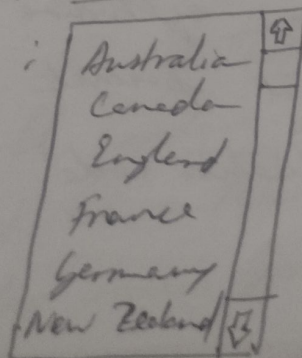 Australia
Canada
England
France
Germany
New Zealand